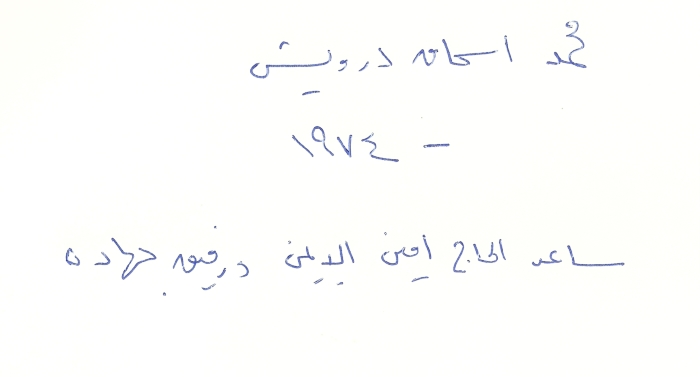 محمد اسحاق درويش
١٩٧٤ -
ساعد الحاج أمين الايمن ورفيق جهاده